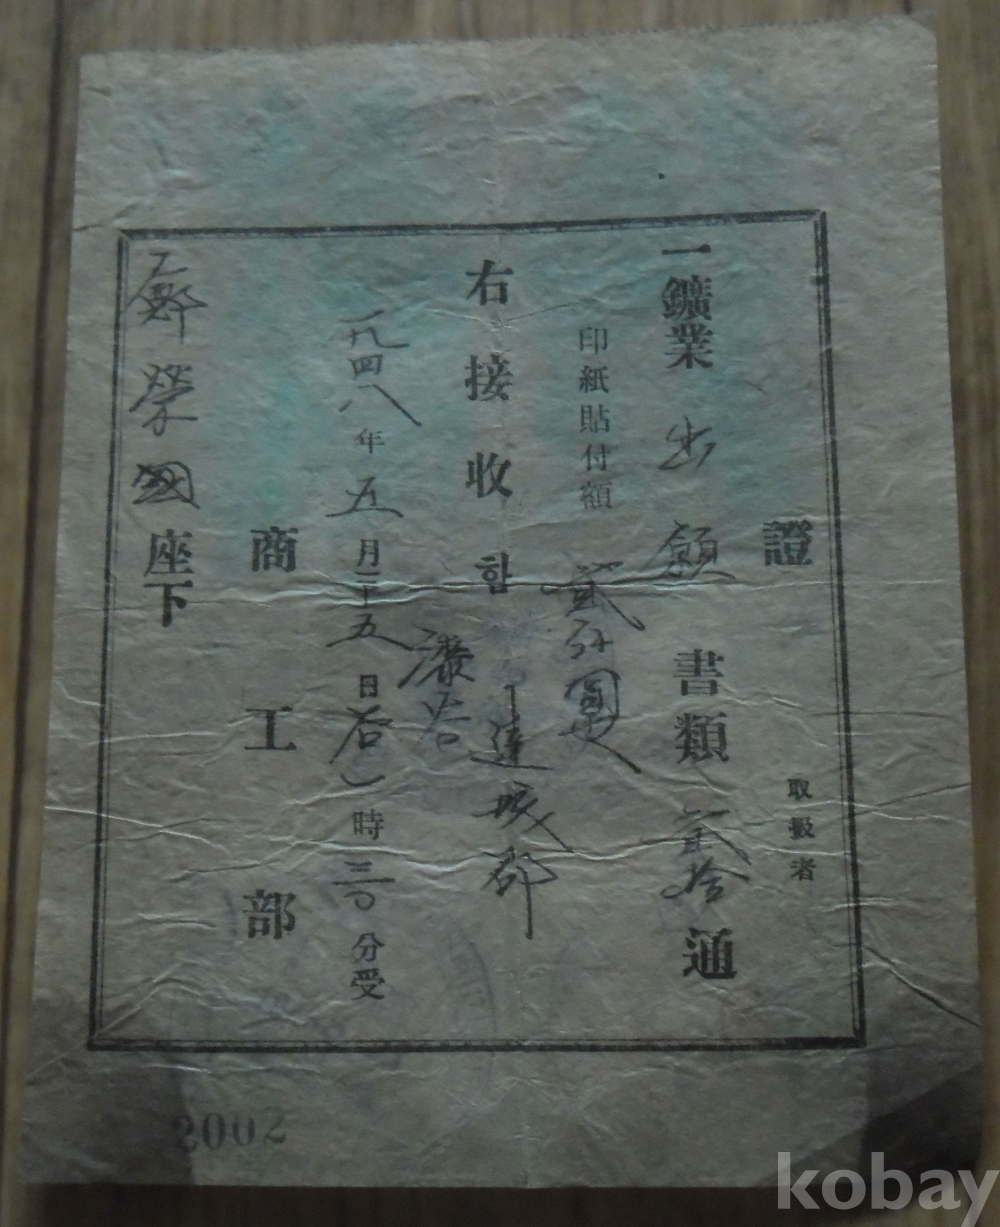 證
取扱者
一鑛業出願書類貳拾通
印紙貼付額 貳千圓
右接收함
達城郡
一九四八年五月二十五日 時三〇分受
商工部
鄭榮國座下
2002
kobay